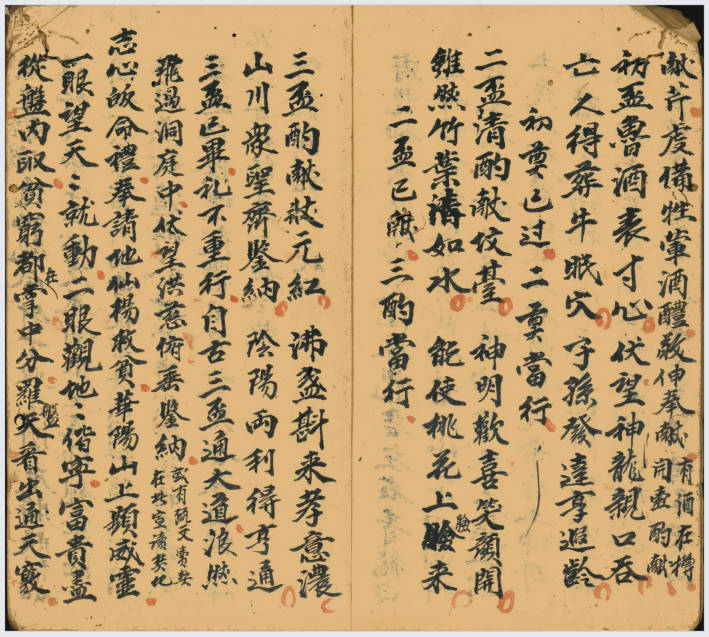 献芹虔備牲葷酒醴敬伸奉献 有酒在樽 開壺酌献
初盃魯酒表寸心伏望神龍親口吞
亡人得葬牛眠穴 子孫發達享遐齡
初奠已过 二奠當行
二盃清酌献坟臺 神明歡喜笑顏開
雖然竹葉清如水 能使桃花上臉来
二盃已献 三酌當行
三盃酌献狀元紅 沸盞斟来孝意濃
山川衆聖齊鑒納 陰陽兩利得亨通
三盃已畢礼不重行自古三盃通大道浪然
飛過洞庭中伏望洪慈俯垂鑒納 或有疏文賣契 在此宣讀焚化
志心皈命禮奉請地仙楊救貧華陽山上顯威靈
一眼望天天就動二眼觀地地偕寧富貴盡
從盤内取貧窮都在掌中分羅盤看出通天竅